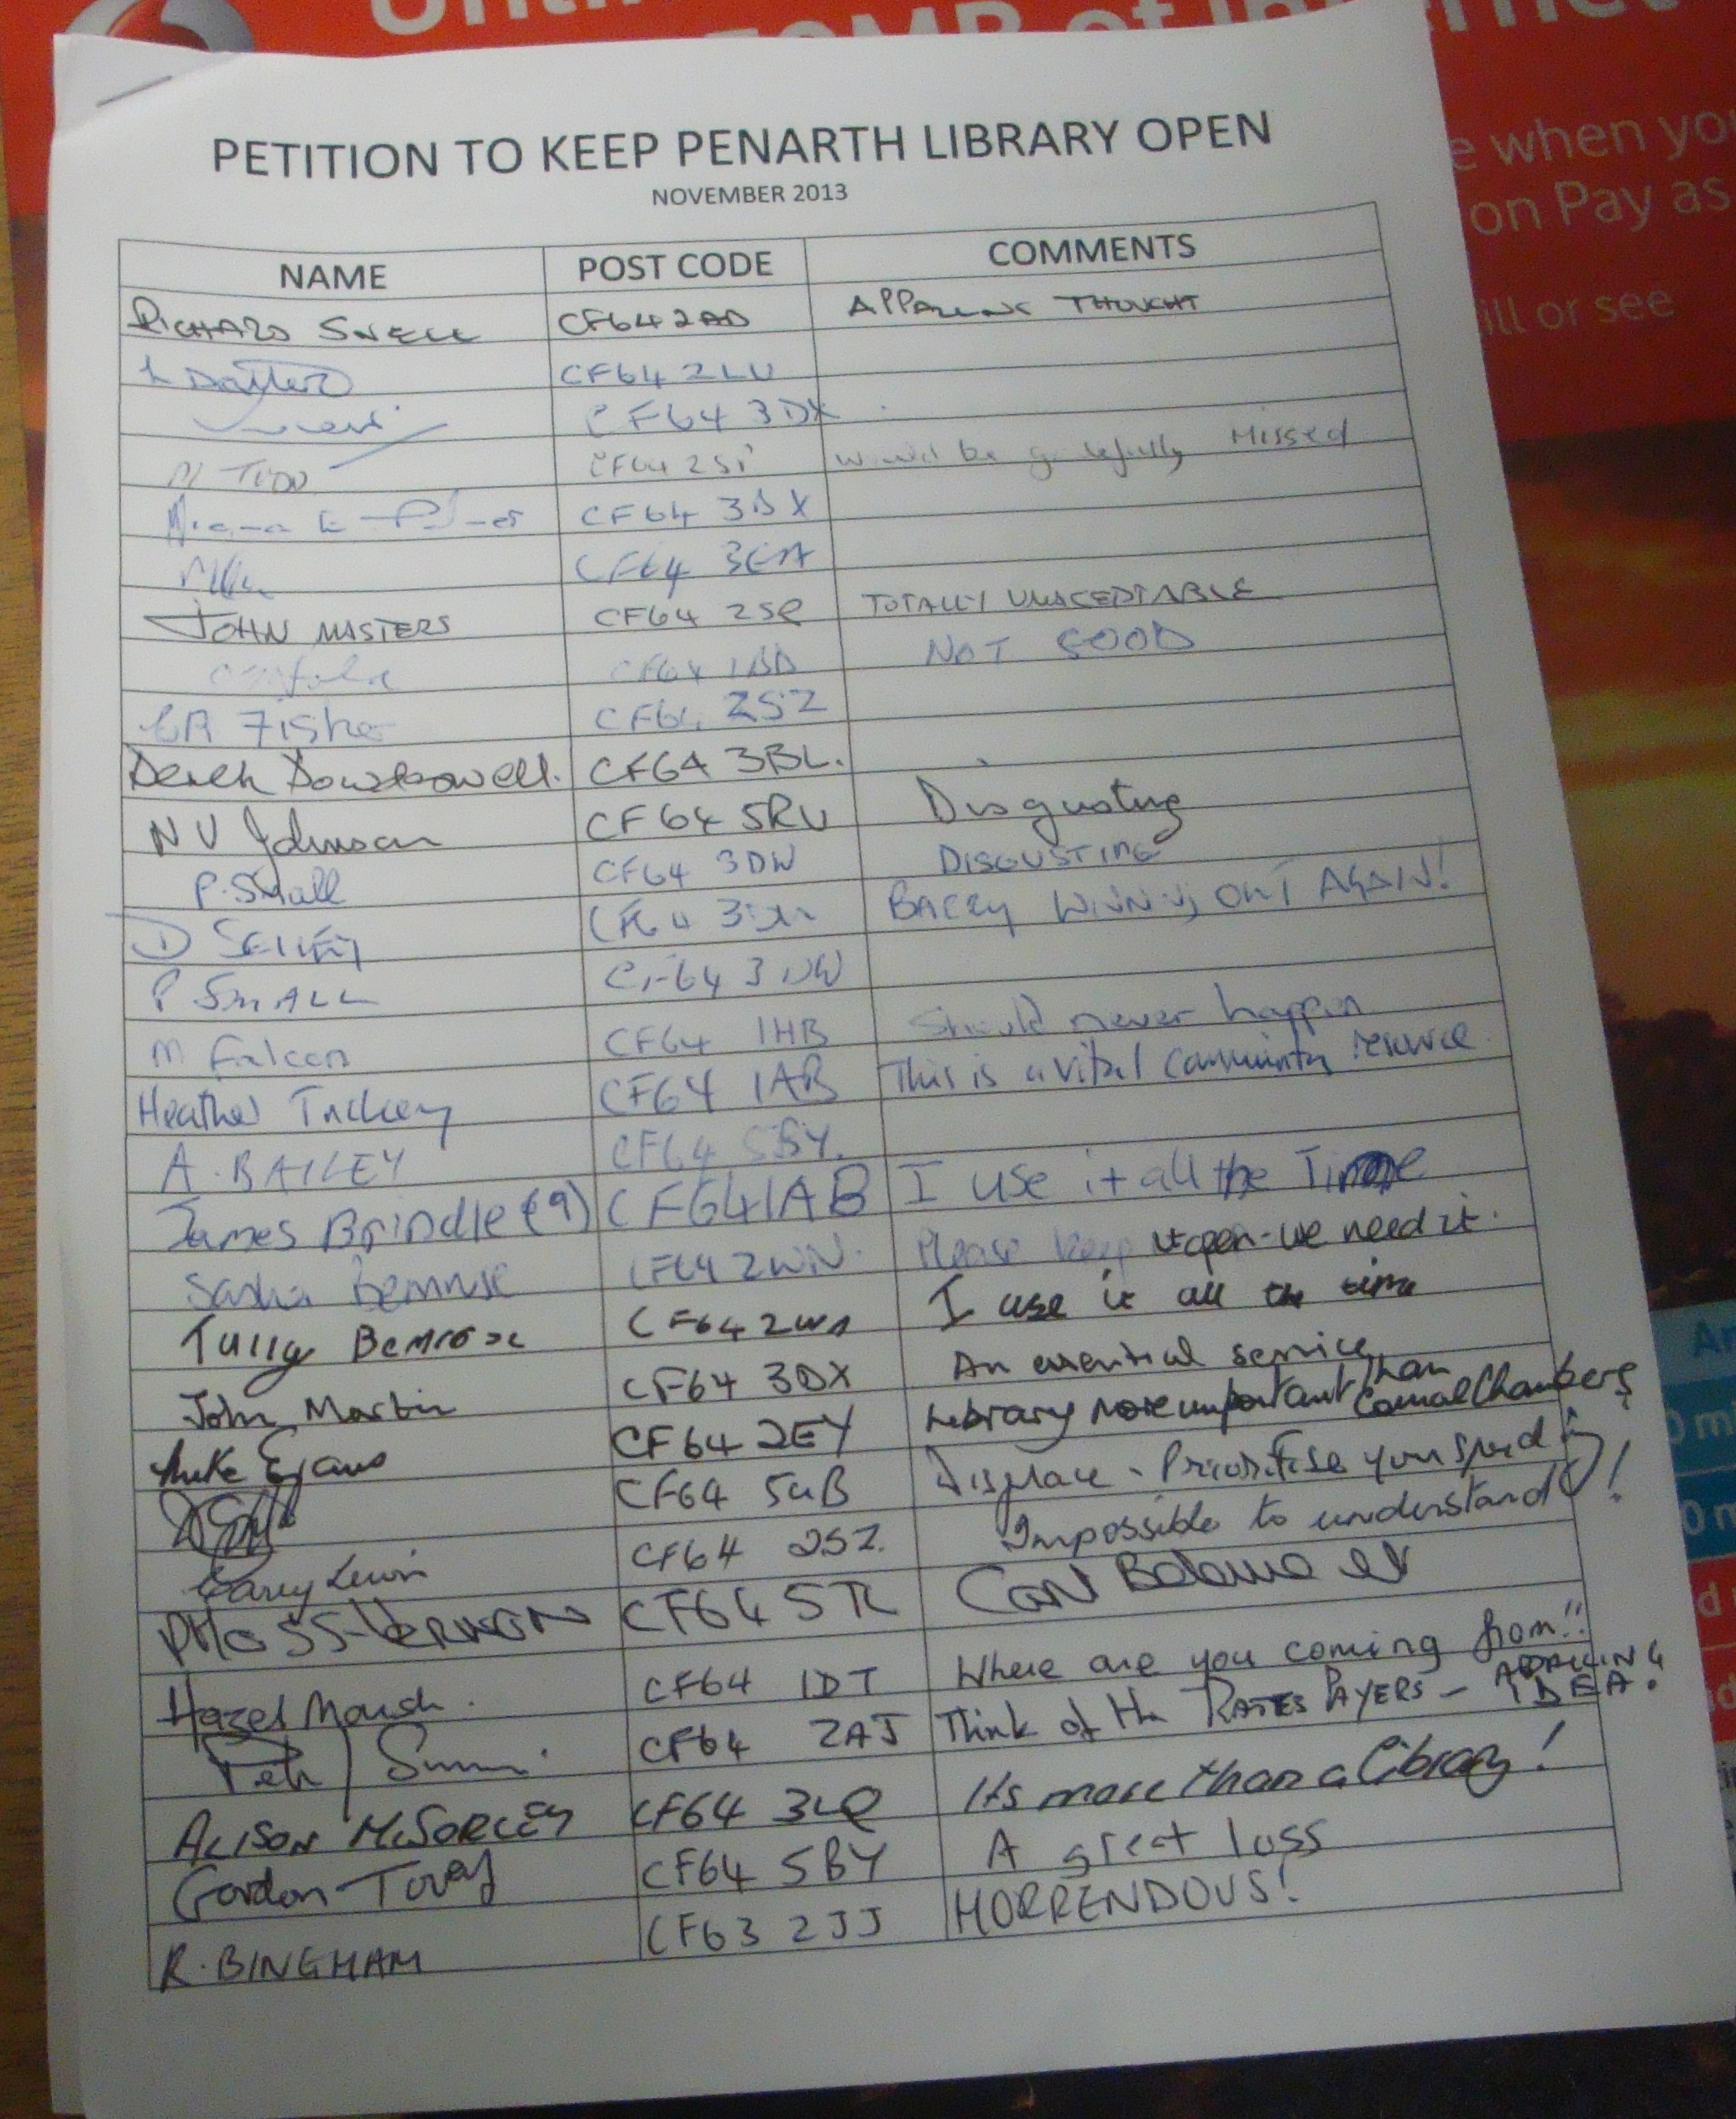 50MB of Internet
e when yo
on Pay as
ill or see
PETITION TO KEEP PENARTH LIBRARY OPEN
NOVEMBER 2013
NAME POST CODE COMMENTS
RICHARD SNELL CF64 2AD APPALLING THOUGHT
CF64 2LU
CF64 3DX
would be Missed
CF64 3DX
CF64
JOHN MASTERS CF64 2SQ TOTALLY UNACEPTABLE
CF64 1BD NOT GOOD
Fisher CF64 2SZ
Derek CF64 3BL.
N V Johnson CF64 5RU Disgusting
P. Small CF64 3DW DISGUSTING
D CF64 BARRY WINNING OUT AGAIN!
P SMALL CF64 3DW
M Falcon CF64 1HB Should never happen
Heather Tuckey CF64 1AB This is a vital community resource.
A. BAILEY CF64 5BY.
James Brindle (9) CF64 1AB I use it all the Time
Sasha Bemrose CF64 2WN. Please keep it open - we need it.
Tully Bemrose CF64 2WN I use it all the time
John Martin CF64 3DX An essential service
Mike Evans CF64 2EY Library more important than Carnal Chambers
CF64 5UB Displace - Prioritise your spending
Garry Lewis CF64 2SZ. Impossible to understand!
P MOSS-VERNON CF64 5TL
Hazel Marsh. CF64 1DT Where are you coming from!!
CF64 2AJ Think of the RATES PAYERS - APPALLING IDEA!
ALISON McSORLEY CF64 3LQ Its more than a library!
Gordon Tovey CF64 5BY A great loss
R. BINGHAM CF63 2JJ HORRENDOUS!